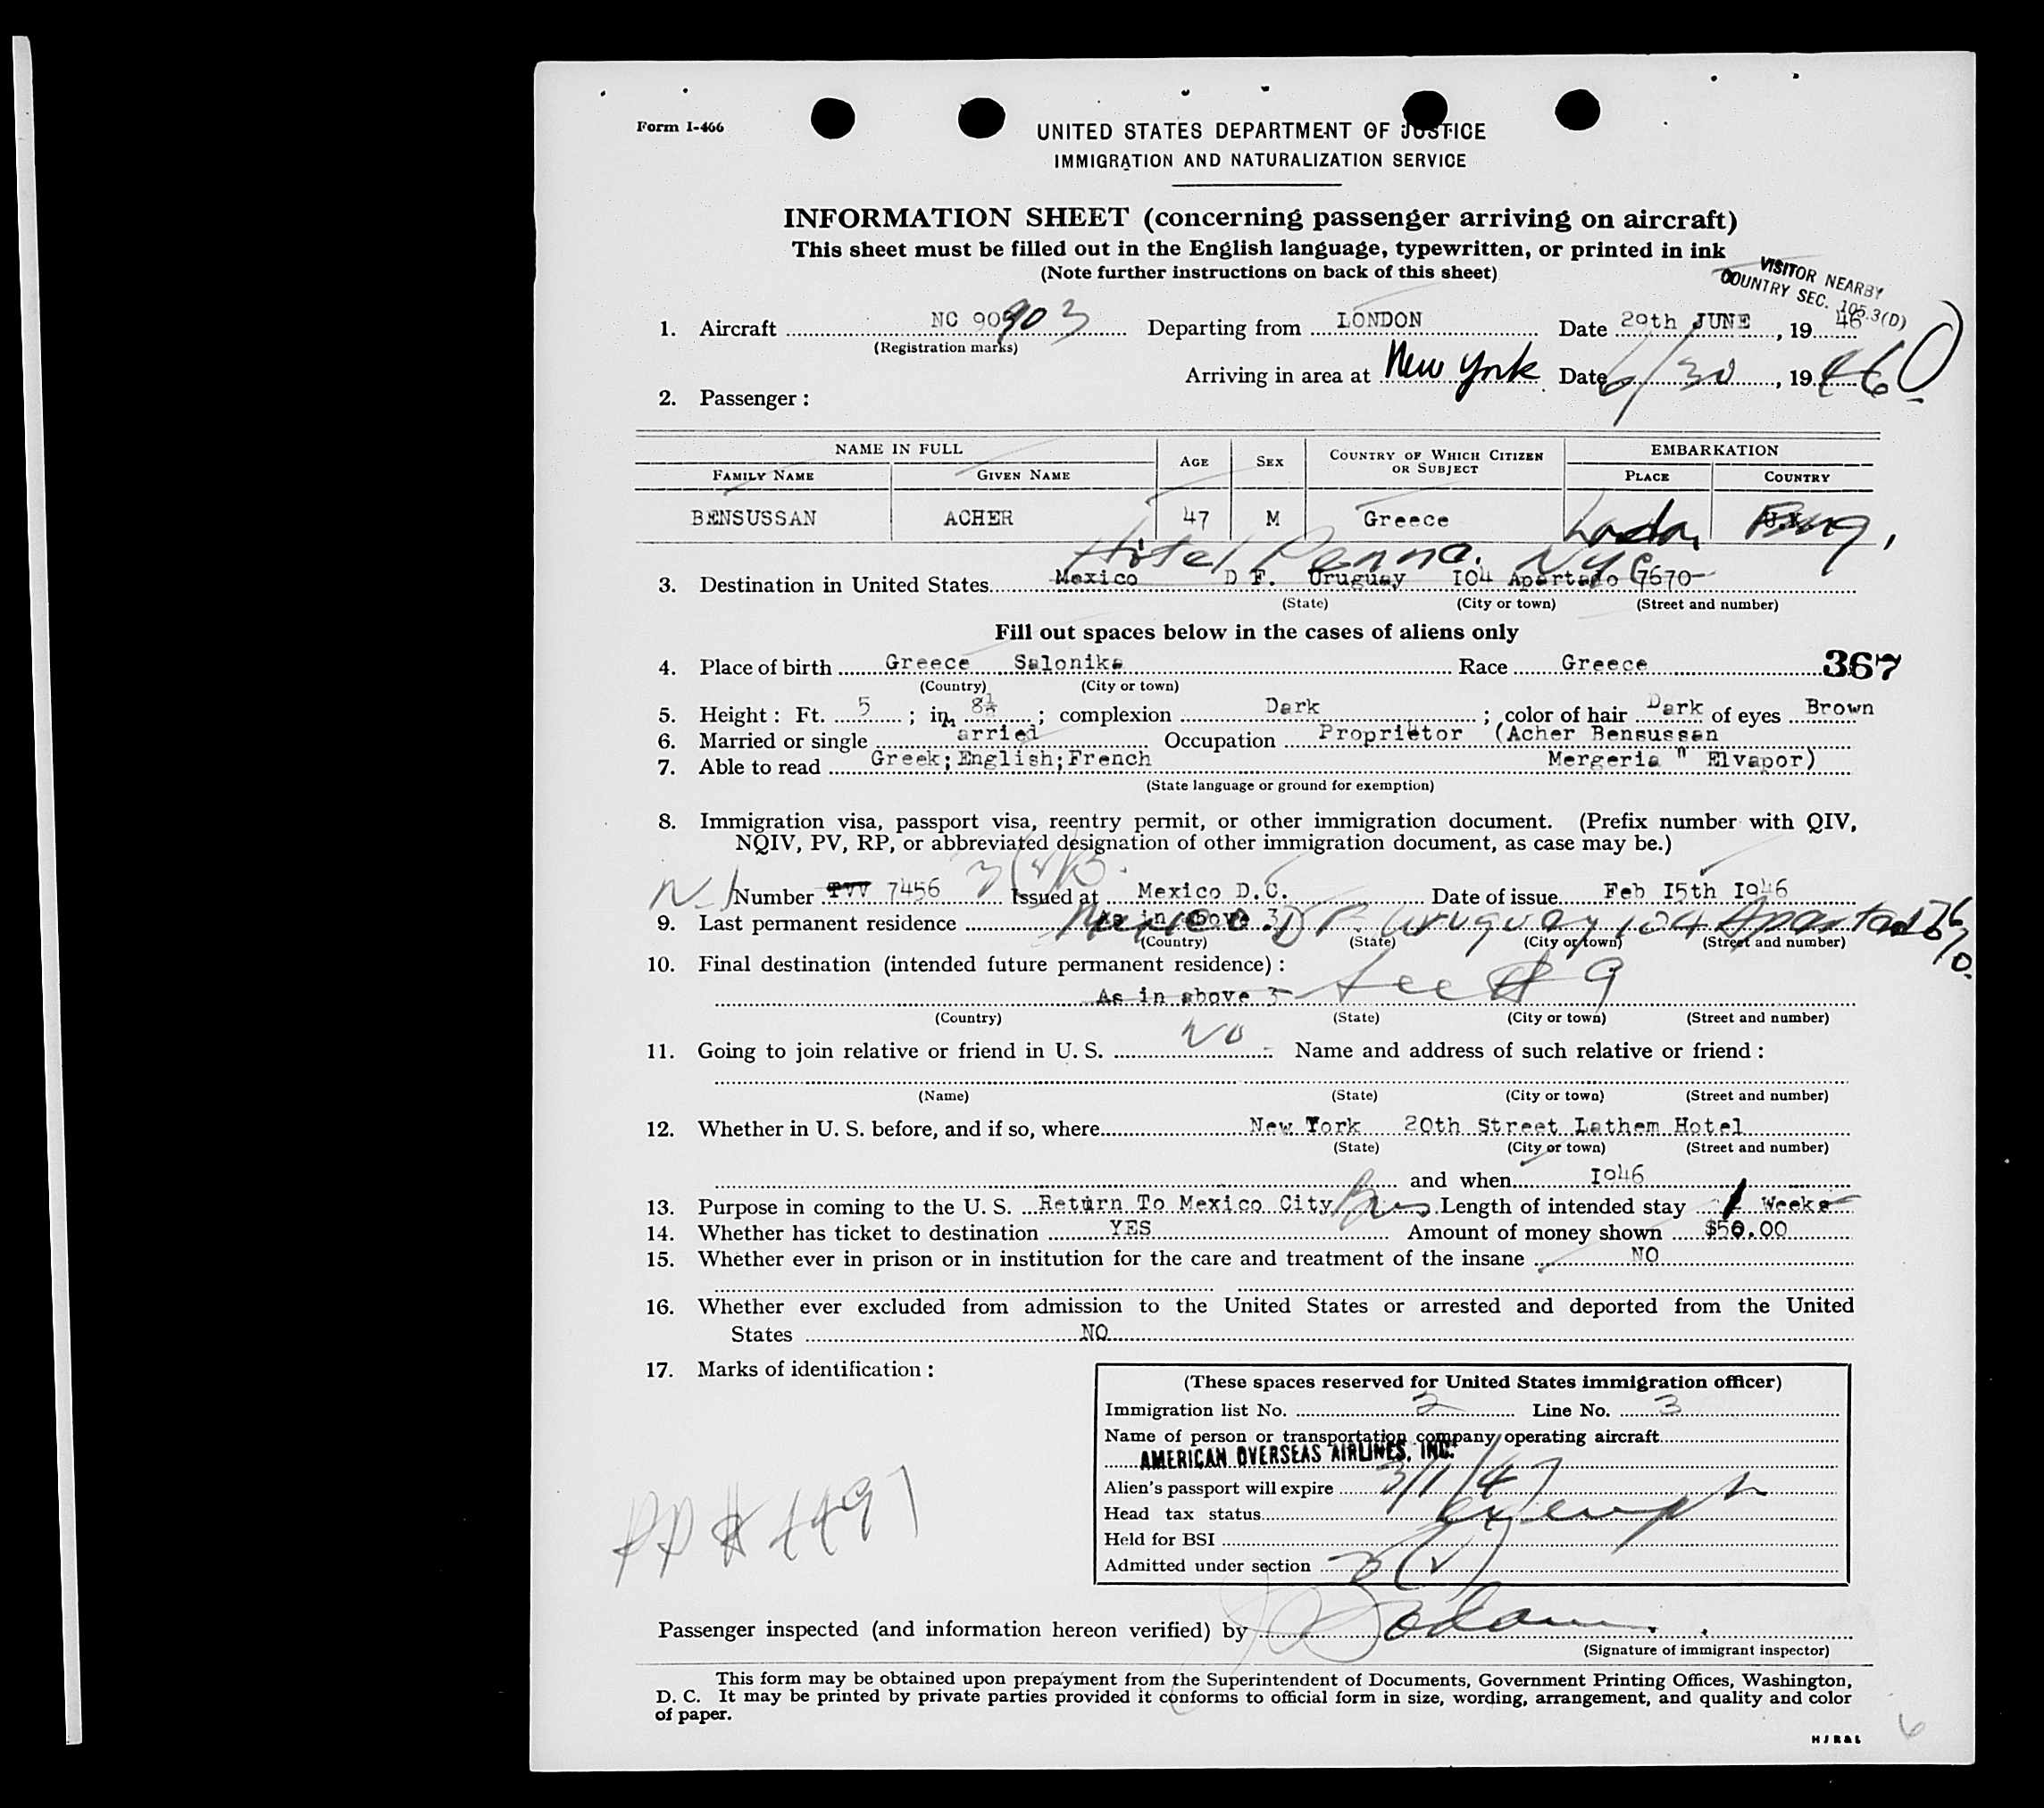 Form I-466
UNITED STATES DEPARTMENT OF JUSTICE
IMMIGRATION AND NATURALIZATION SERVICE
INFORMATION SHEET (concerning passenger arriving on aircraft)
This sheet must be filled out in the English language, typewritten, or printed in ink
(Note further instructions on back of this sheet)
VISITOR NEARBY
COUNTRY SEC. 105.3(D)
1. Aircraft NC 90903 Departing from LONDON Date 29th JUNE, 19 46
(Registration marks)
Arriving in area at New York Date 6/30, 19 46
2. Passenger :
NAME IN FULL AGE SEX COUNTRY OF WHICH CITIZEN OR SUBJECT EMBARKATION
FAMILY NAME GIVEN NAME PLACE COUNTRY
BENSUSSAN ACHER 47 M Greece London Eng,
Hotel Penna. NYC
3. Destination in United States Mexico D F. Uruguay I04 Apartado 7670
(State) (City or town) (Street and number)
Fill out spaces below in the cases of aliens only
4. Place of birth Greece Salonika Race Greece 367
(Country) (City or town)
5. Height : Ft. 5 ; in. 8½ ; complexion Dark ; color of hair Dark of eyes Brown
6. Married or single arried Occupation Proprietor (Acher Bensussan
7. Able to read Greek; English; French Mergeria " Elvapor)
(State language or ground for exemption)
8. Immigration visa, passport visa, reentry permit, or other immigration document. (Prefix number with QIV,
NQIV, PV, RP, or abbreviated designation of other immigration document, as case may be.)
Number 7456 Issued at Mexico D.C. Date of issue Feb I5th I946
9. Last permanent residence As in above 3 Mexico D F. Uruguay 104 Apartado 7670.
(Country) (State) (City or town) (Street and number)
10. Final destination (intended future permanent residence) :
As in above 3 See # 9
(Country) (State) (City or town) (Street and number)
11. Going to join relative or friend in U. S. No Name and address of such relative or friend :
(Name) (State) (City or town) (Street and number)
12. Whether in U. S. before, and if so, where New York 20th Street Lathem Hotel
(State) (City or town) (Street and number)
and when I946
13. Purpose in coming to the U. S. Return To Mexico City Bus Length of intended stay 1 Weeks
14. Whether has ticket to destination YES Amount of money shown $50.00
15. Whether ever in prison or in institution for the care and treatment of the insane NO
16. Whether ever excluded from admission to the United States or arrested and deported from the United
States NO
17. Marks of identification :
(These spaces reserved for United States immigration officer)
Immigration list No. 2 Line No. 3
Name of person or transportation company operating aircraft
AMERICAN OVERSEAS AIRLINES, INC.
Alien's passport will expire 3/1/47
Head tax status exempt
Held for BSI
Admitted under section 3(2)
PP # 4497
Passenger inspected (and information hereon verified) by
(Signature of immigrant inspector)
This form may be obtained upon prepayment from the Superintendent of Documents, Government Printing Offices, Washington,
D. C. It may be printed by private parties provided it conforms to official form in size, wording, arrangement, and quality and color
of paper.
H J R & L
6